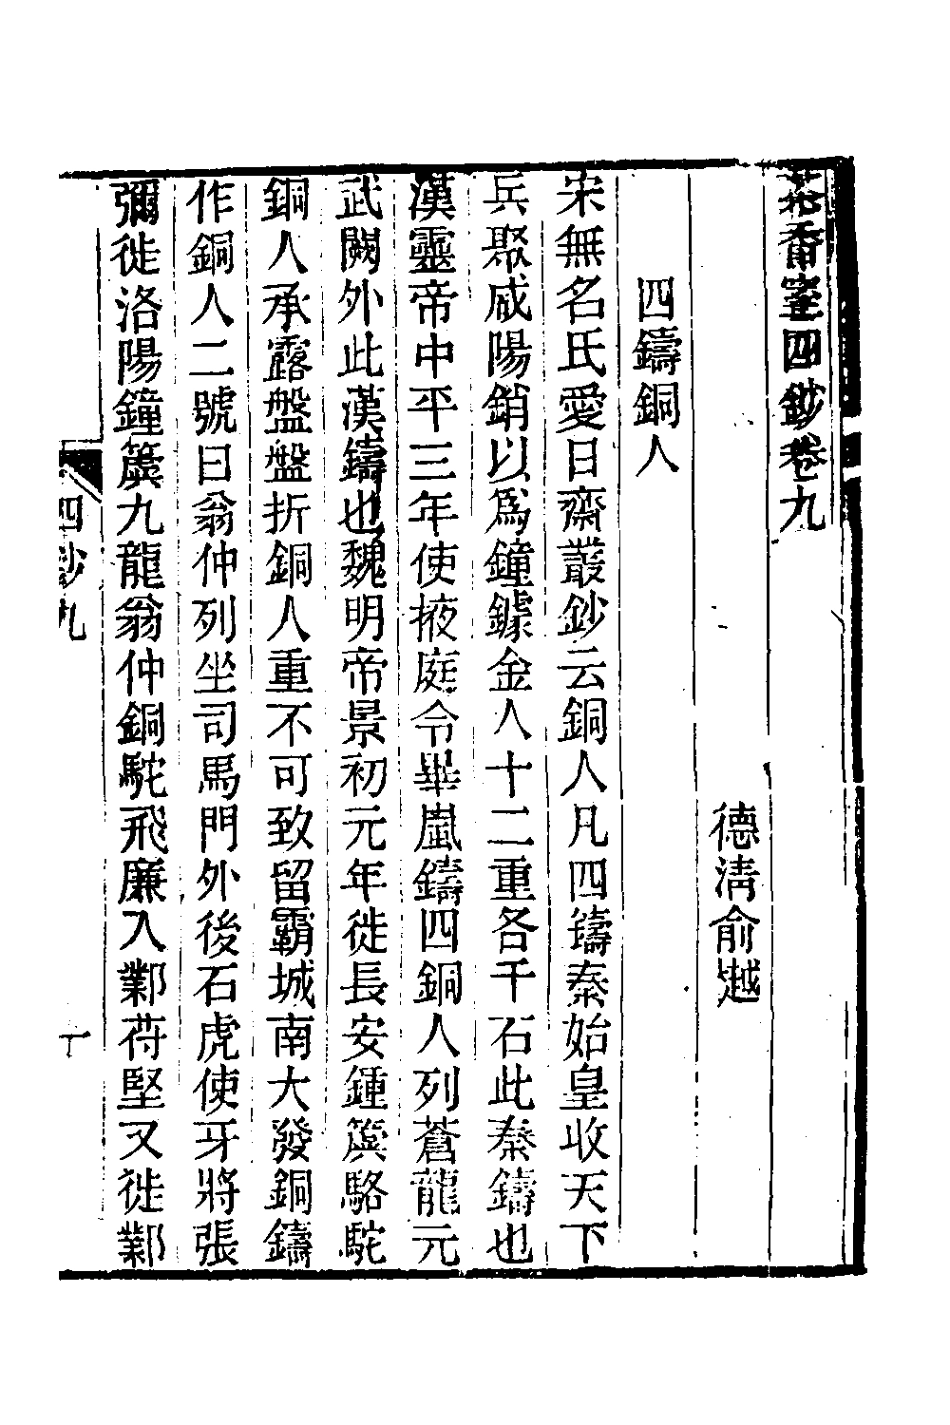 茶香室四鈔卷九
德淸俞樾
四鑄銅人
宋無名氏愛日齋叢鈔云銅人凡四鑄秦始皇收天下
兵聚咸陽銷以爲鐘鐻金人十二重各千石此秦鑄也
漢靈帝中平三年使掖庭令畢嵐鑄四銅人列蒼龍元
武闕外此漢鑄也魏明帝景初元年徙長安鍾簴駱駝
銅人承露盤盤折銅人重不可致留霸城南大發銅鑄
作銅人二號曰翁仲列坐司馬門外後石虎使牙將張
彌徙洛陽鐘簴九龍翁仲銅駝飛廉入鄴苻堅又徙鄴
四鈔九